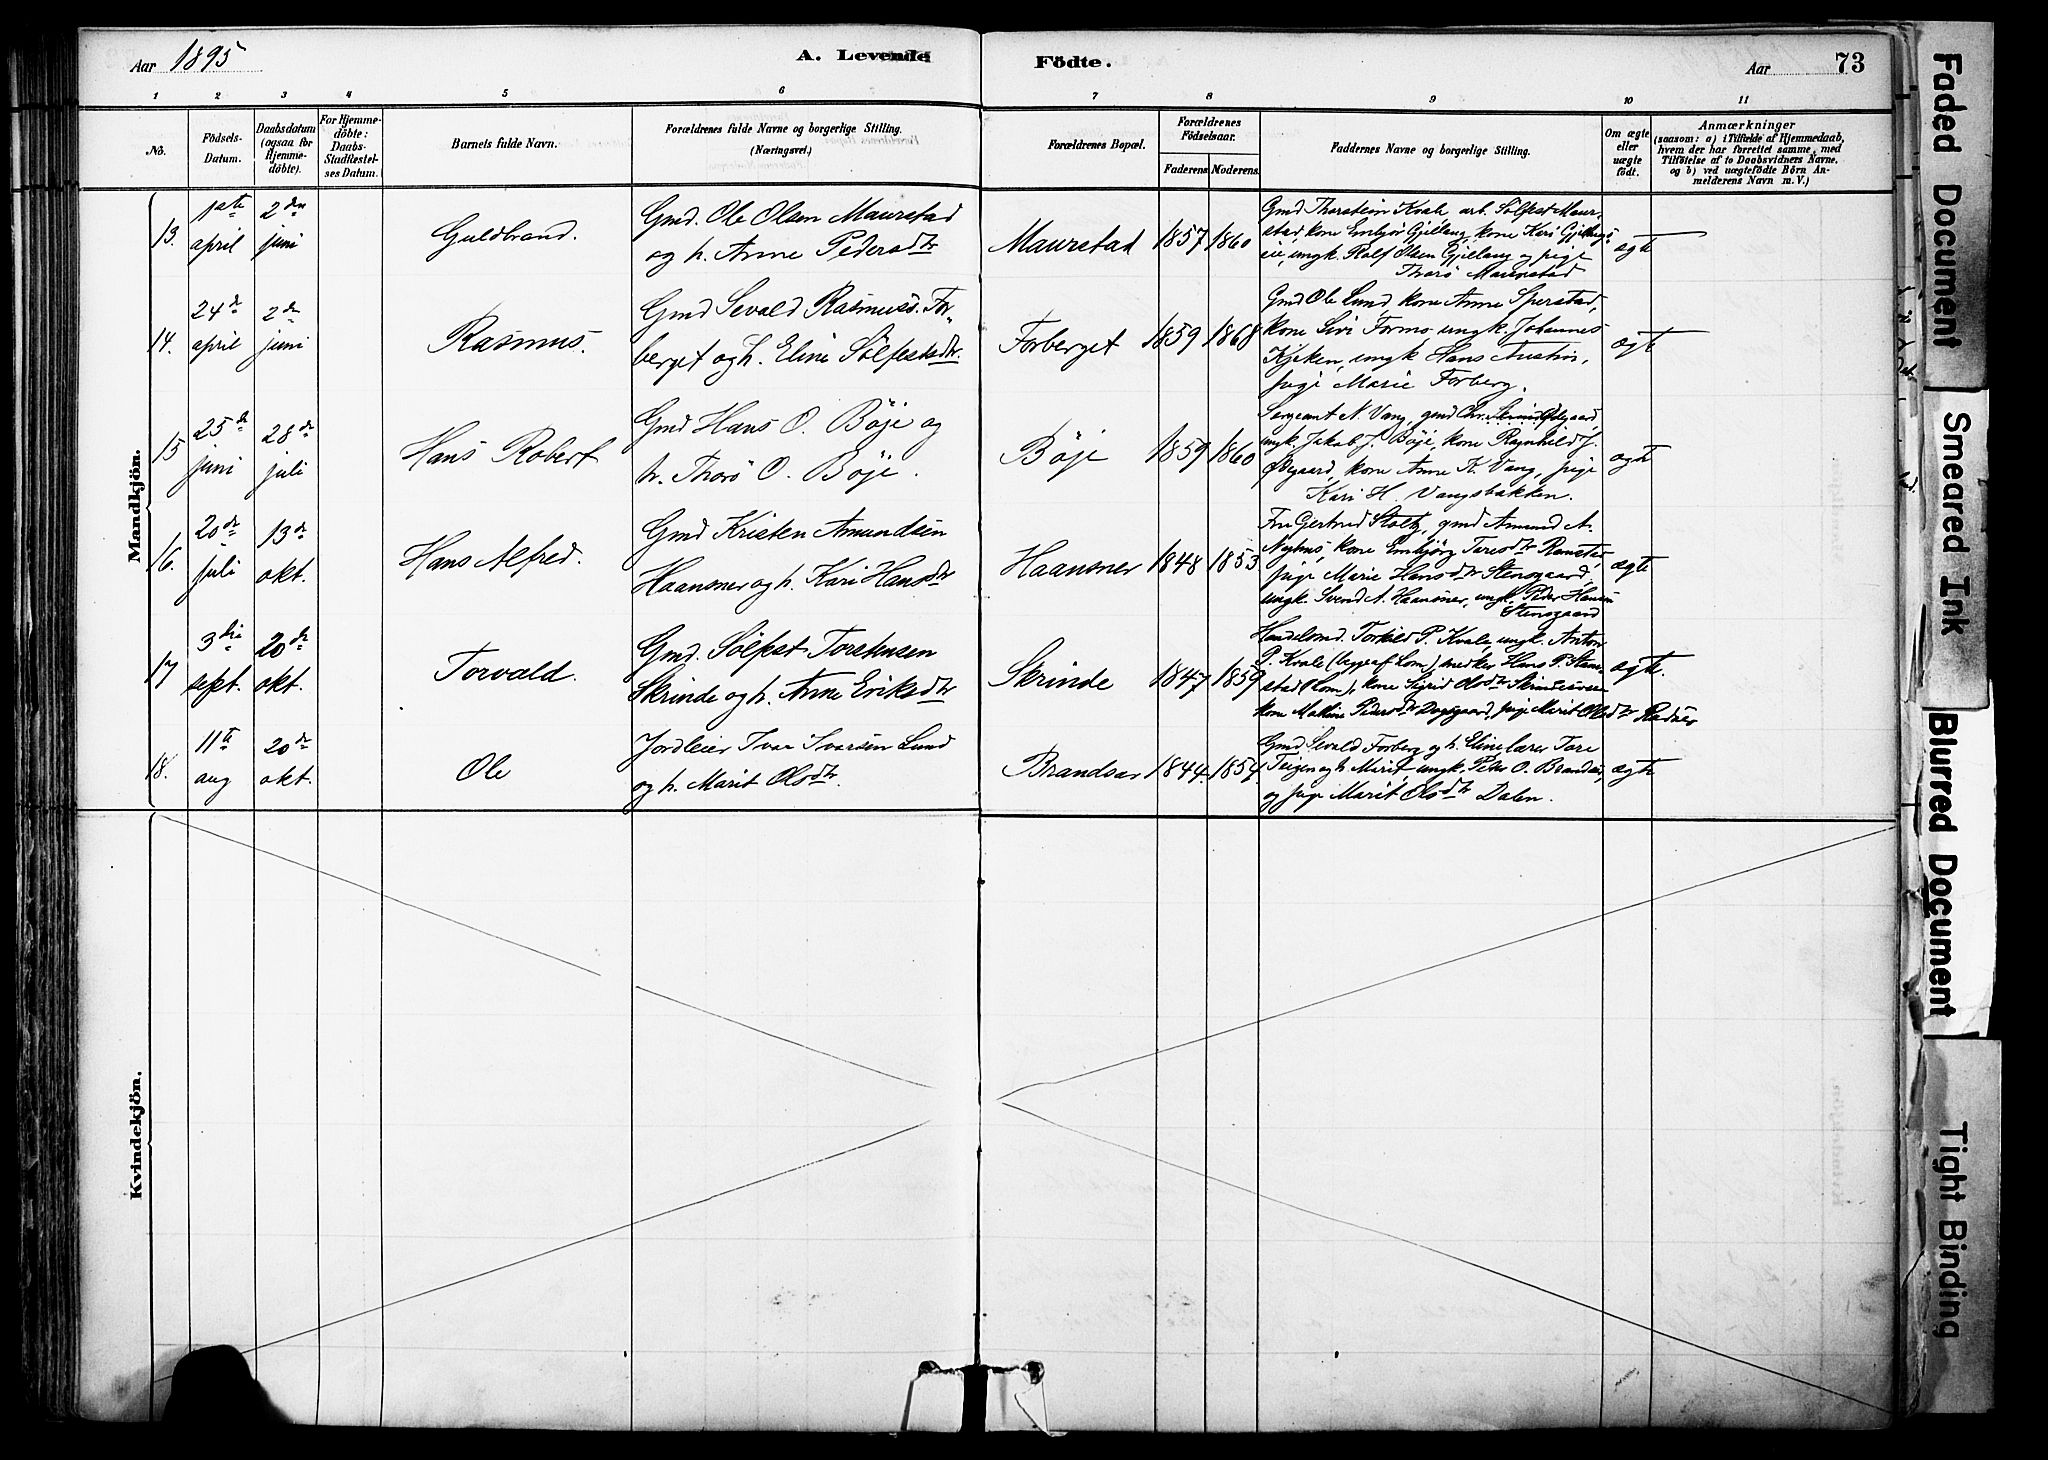 Aar 1895
A. Levende Födte.
Aar
73
1 2 3 4 5 6 7 8 9 10 11
No.
Födsels-Datum.
Daabsdatum (ogsaa for Hjemme-döbte).
For Hjemme-döbte: Daabs-Stadfæstel-ses Datum.
Barnets fulde Navn.
Forældrenes fulde Navne og borgerlige Stilling.
(Næringsvei.)
Forældrenes Bopæl.
Forældrenes Födselsaar.
Faderens Moderens.
Faddernes Navne og borgerlige Stilling.
Om ægte eller uægte födt.
Anmærkninger
(saasom: a) i Tilfælde af Hjemmedaab,
hvem der har forrettet samme, med
Tilföielse af to Daabsvidners Navne,
og b) ved uægtefödte Börn An-
melderens Navn m. V.)
Mandkjön.
13. 1ste april 2den juni
Guldbrand.
Gmd. Ole Olsen Maurstad
og h. Anne Pedersdtr
Maurstad 1857 1860
Gmd Thorstein Kvale arb. Sölfest Maur-
stad, kone Embjör Gjeilang, kone Kari Gjeilang-
eie, ungk. Rolf Olsen Gjeilang og pige
Thorö Maurstad
ægte
14. 24de april 2den juni
Rasmus.
Gmd Sevald Rasmuss. For-
berget og h. Eline Sölfestsdtr.
Forberget 1859 1868
Gmd Ole Lund, kone Anne Sperstad,
kone Sivi Formo ungk. Johannes
Kjæken, ungk Hans
pige Marie Forberg.
ægte
15 25de juni 28de juli
Hans Robert
Gmd Hans O. Böje og
h. Thorö O. Böje.
Böje 1859 1860
Sergeant N. Vang, gmd Chr.
ungk. Jakob J. Böje, kone Ragnhild J.
Öygaard, kone Anne K. Vang, pige
Kari H. Vangsbakken.
ægte
16. 20de juli 13de okt.
Hans Alfred.
Gmd Kristen Amundsen
Haansner og h. Kari Hansdtr
Haansner 1848 1853
Fru Gertrud Stoltz, gmd Amund A.
Nyhus, kone Embjörg Toresdtr Ramstad,
pige Marie Hansdtr Stensgaard,
ungk. Svend A. Haansner, ungk. Peder Hansen
Stensgaard
ægte
17 3die sept. 20de okt.
Torvald.
Gmd. Sölfest Torstensen
Skrinde og h. Anne Eriksdtr
Skrinde 1847 1859
Handelsmd. Torkild P. Kvale, ungk. Anton
P. Kvale (begge af Lom), snedker Hans P. Stam-
stad (Lom), kone Sigrid Olsdtr
kone Mathine Pedersdtr pige Marit Olsdtr
ægte.
18. 11te aug 20de okt.
Ole
Jordleier Ivar Ivarsen Lund
og h. Marit Olsdtr.
Brandsar 1844. 1854.
Gmd Sevald Forberg og h. Eline lærer Tore
Teigen og h. Marit, ungk. Peter O.
og pige Marit Olsdtr Dalen.
ægte
Kvindekjön.
Faded Document
Smeared Ink
Blurred Document
Tight Binding